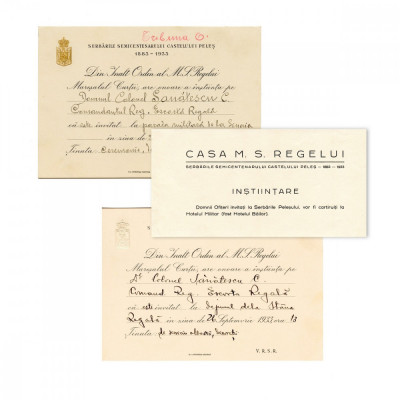 Tribuna O.
SERBĂRILE SEMICENTENARULUI CASTELULUI PELEȘ
1883-1933
Din Inalt Ordin al M.S. Regelui
Mareșalul Curții, are onoare a înștiința pe
Domnul Colonel Sănătescu C
Comandantul Reg. Escortă Regală
că este invitat la parada militară
în ziua de
Ținuta Ceremonie,
CASA M. S. REGELUI
SERBĂRILE SEMICENTENARULUI CASTELULUI PELEȘ – 1883 - 1933
INSTIINȚARE
Domnii Ofițeri invitați la Serbările Peleșului, vor fi cantruiți la
Hotelul Militar (fost Hotelul Băilor).
Din Inalt Ordin al M.S. Regelui
Mareșalul Curții, are onoare a înștiința pe
Dl Colonel Sănătescu C
Comand Reg. Escorta Regală
că este invitat la Dejunul dela Stâna
Regală în ziua de 26 Septemvrie 1933 ora 13
Ținuta de serviciu
V.R.S.R.